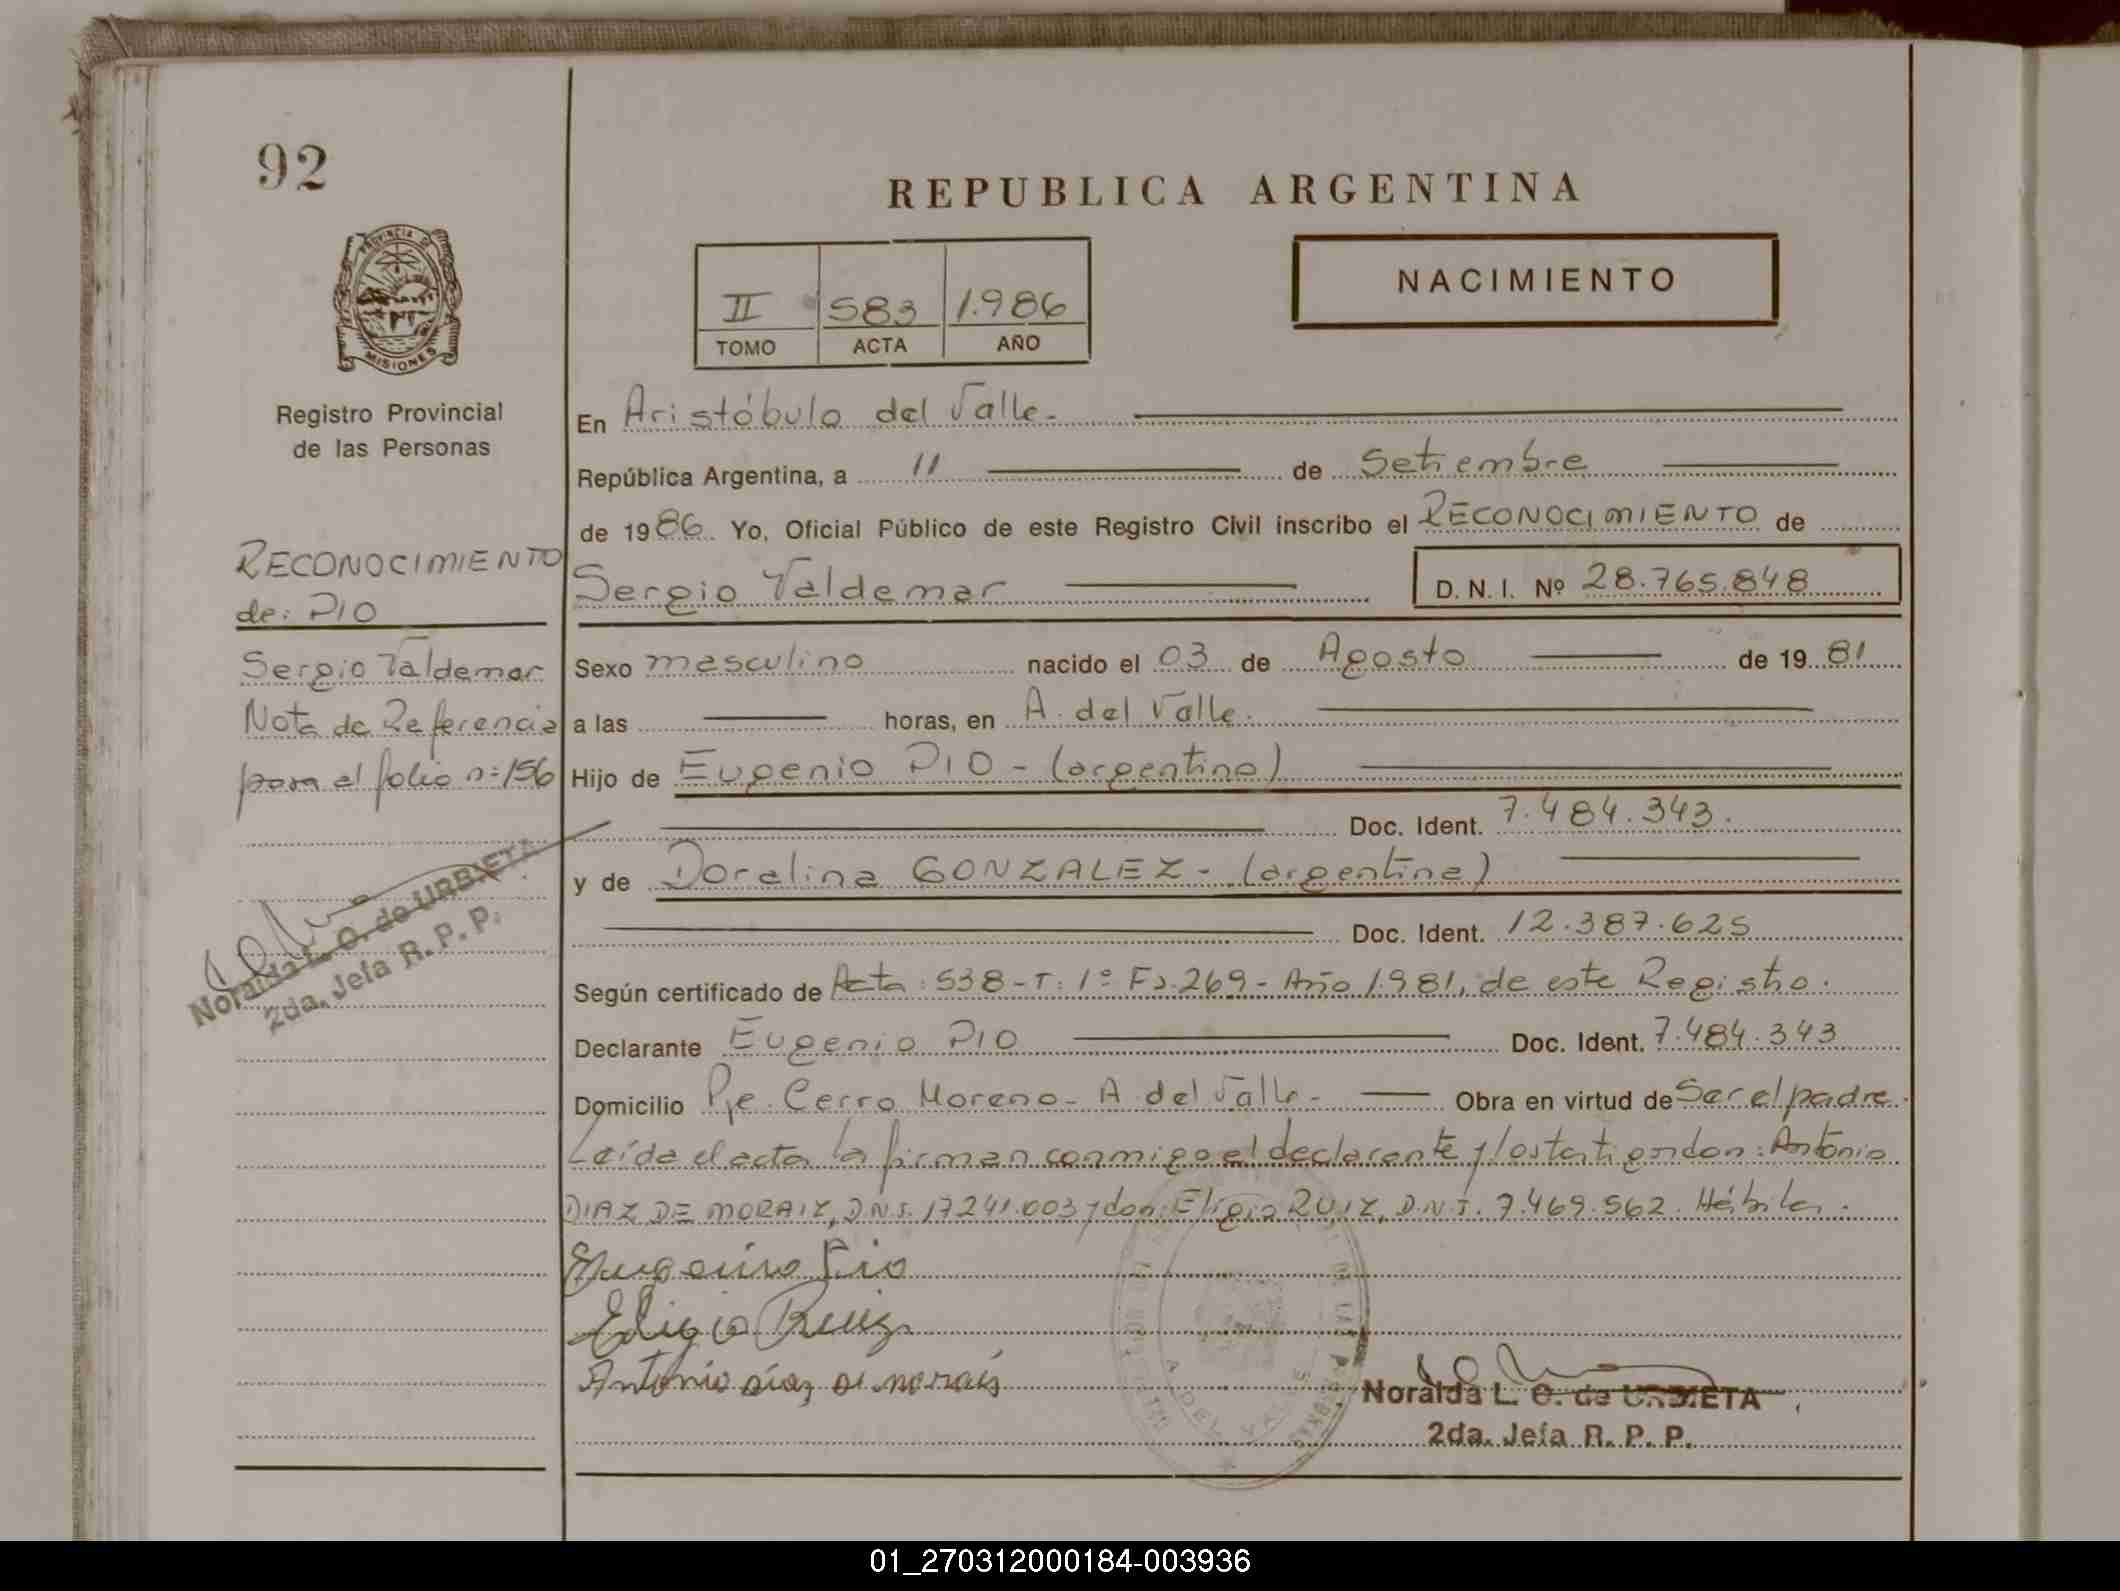 92
REPUBLICA ARGENTINA
PROVINCIA DE
MISIONES
Registro Provincial
de las Personas
II 583 1.986
TOMO ACTA AÑO
NACIMIENTO
En Aristóbulo del Valle.-
República Argentina, a 11 de Setiembre
de 1986. Yo, Oficial Público de este Registro Civil inscribo el RECONOCIMIENTO de
Sergio Valdemar D. N. I. Nº 28.765.848
Sexo masculino nacido el 03 de Agosto de 1981
a las horas, en A. del Valle.
Hijo de Eugenio PIO - (argentino)
Doc. Ident. 7.484.343.
y de Doralina GONZALEZ - (argentina)
Doc. Ident. 12.387.625
Según certificado de Acta: 538 - T: 1º Fº.269 - Año 1.981, de este Registro.
Declarante Eugenio PIO Doc. Ident. 7.484.343
Domicilio Pje. Cerro Moreno - A. del Valle - Obra en virtud de Ser el padre.
Leída el acta la firman conmigo el declarante y los testigos don: Antonio
DIAZ DE MORAIZ, D.N.I. 17.241.003 y don: Eligio RUIZ, D.N.I. 7.469.562. Hábiles.
Eugenio Pio
Eligio Ruiz
Antonio diaz de morais
A. DEL VALLE
Noralda L. O. de URBIETA
2da. Jefa R. P. P.
RECONOCIMIENTO
de: PIO
Sergio Valdemar
Nota de Referencia
para el folio nº 156
Noralda L. O. de URBIETA
2da. Jefa R. P. P.
01_270312000184-003936